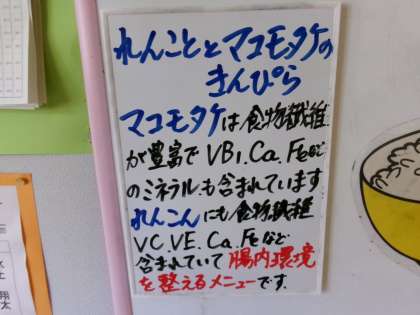 れんこんとマコモタケの
きんぴら
マコモタケは食物繊維
が豊富でVB1.Ca.Feなど
のミネラルも含まれています
れんこんにも食物繊維
VC.VE.Ca.Feなど
含まれていて腸内環境
を整えるメニューです。